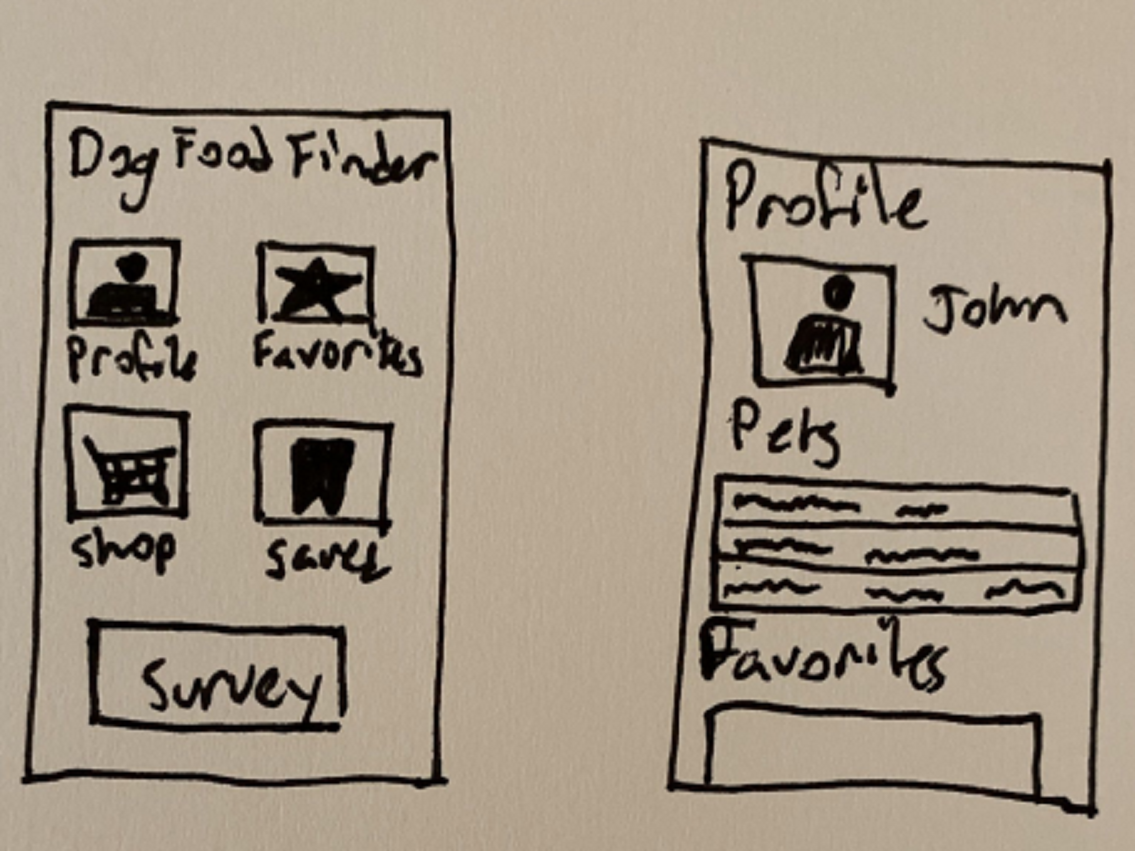 Dog Food Finder
Profile Favorites
Shop Saved
Survey
Profile
John
Pets
Favorites